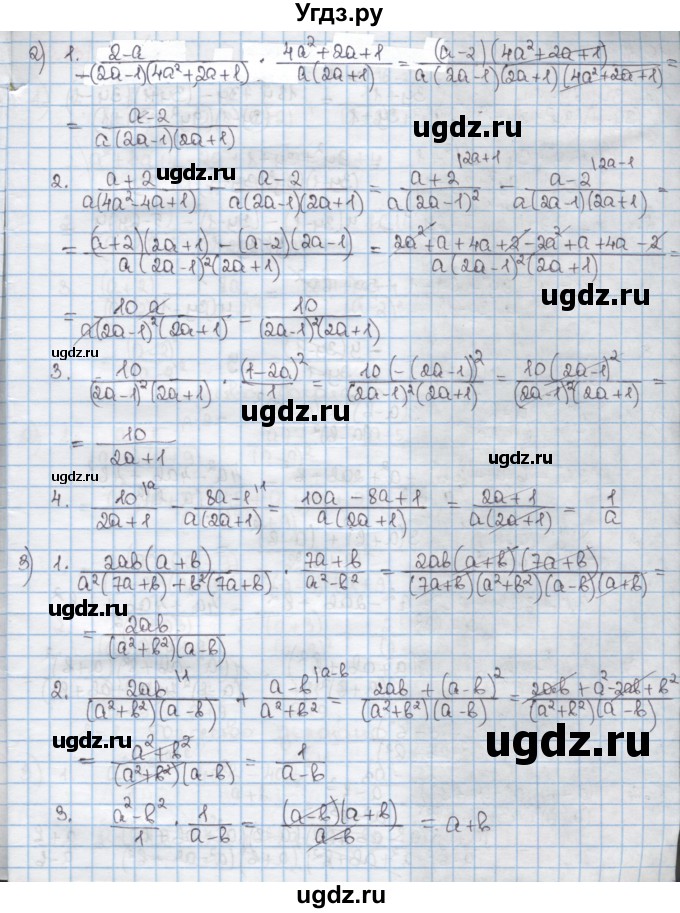 Угдз.ру
2) 1. (2-a)/(-(2a-1)(4a²+2a+1)) · (4a²+2a+1)/(a(2a+1)) = ((a-2)(4a²+2a+1))/(a(2a-1)(2a+1)(4a²+2a+1)) =
= (a-2)/(a(2a-1)(2a+1))
ugdz.ru
ugdz.ru
2. (a+2)/(a(4a²-4a+1)) - (a-2)/(a(2a-1)(2a+1)) = (a+2)/(a(2a-1)²) |2a+1 - (a-2)/(a(2a-1)(2a+1)) |2a-1 =
= ((a+2)(2a+1) - (a-2)(2a-1))/(a(2a-1)²(2a+1)) = (2a²+a+4a+2-2a²+a+4a-2)/(a(2a-1)²(2a+1)) =
ugdz.ru
= (10a)/(a(2a-1)²(2a+1)) = 10/((2a-1)²(2a+1))
ugdz.ru
3. 10/((2a-1)²(2a+1)) · (1-2a)²/1 = (10(-(2a-1))²)/((2a-1)²(2a+1)) = (10(2a-1)²)/((2a-1)²(2a+1)) =
ugdz.ru
= 10/(2a+1)
ugdz.ru
ugdz.ru
4. 10/(2a+1) |a - (8a-1)/(a(2a+1)) |1 = (10a-8a+1)/(a(2a+1)) = (2a+1)/(a(2a+1)) = 1/a
3) 1. (2ab(a+b))/(a²(7a+b)+b²(7a+b)) · (7a+b)/(a²-b²) = (2ab(a+b)(7a+b))/((7a+b)(a²+b²)(a-b)(a+b)) =
ugdz.ru
= 2ab/((a²+b²)(a-b))
2. 2ab/((a²+b²)(a-b)) |1 + (a-b)/(a²+b²) |a-b = (2ab+(a-b)²)/((a²+b²)(a-b)) = (2ab+a²-2ab+b²)/((a²+b²)(a-b)) =
ugdz.ru
ugdz.ru
= (a²+b²)/((a²+b²)(a-b)) = 1/(a-b)
3. (a²-b²)/1 · 1/(a-b) = ((a-b)(a+b))/(a-b) = a+b
ugdz.ru